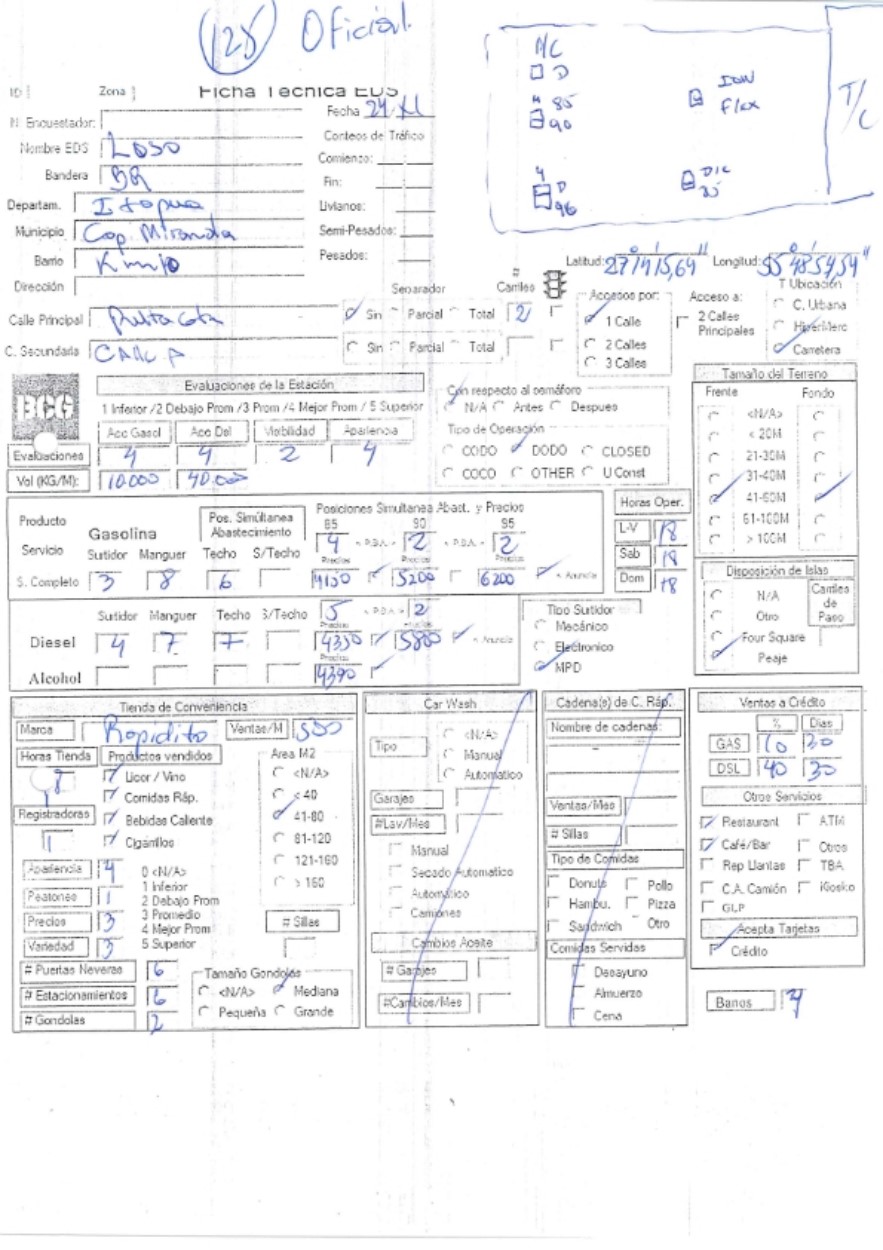 125 Oficial
A/C
D
85
90
ION
Flex
T/C
4
D
96
D/C
85
ID Zona Ficha Tecnica EDS
Fecha 24/XI
N. Encuestador:
Conteos de Tráfico
Nombre EDS
Comienzo:
Bandera BR
Fin:
Departam. Itapua
Livianos:
Municipio Cap. Miranda
Semi-Pesados:
Barrio
Pesados:
Latitud: 27°14'15,64" Longitud: 55°48'54,54"
Dirección
Separador # Carriles Accesos por: Acceso a: T Ubicación
Calle Principal Ruta Sin Parcial Total 2 1 Calle 2 Calles Principales C. Urbana
2 Calles HiperMerc
C. Secundaria Calle A Sin Parcial Total 3 Calles Carretera
BCG
Evaluaciones de la Estación
1 Inferior /2 Debajo Prom /3 Prom /4 Mejor Prom / 5 Superior
Acc Gasol Acc Dsl Visibilidad Apariencia
Evaluaciones 4 4 2 4
Vol (KG/M): 10.000 40.000
Con respecto al semáforo
N/A Antes Despues
Tipo de Operación
CODO DODO CLOSED
COCO OTHER U Const
Tamaño del Terreno
Frente Fondo
<N/A>
< 20M
21-30M
31-40M
41-60M
61-100M
> 100M
Producto Gasolina Pos. Simúltanea Abastecimiento Posiciones Simultanea Abast. y Precios
85 90 95
Servicio Surtidor Manguer Techo S/Techo 4 < P.B.A. > 2 < P.B.A. > 2
Precios Precios Precios
S. Completo 3 8 6 4150 5200 6200 < Anuncia
Horas Oper.
L-V 18
Sab 18
Dom 18
Surtidor Manguer Techo S/Techo 5 < P.B.A. > 2
Precios Precios
Diesel 4 7 7 4350 5800 < Anuncia
Precios
Alcohol 4390
Tipo Surtidor
Mecánico
Electronico
MPD
Disposición de Islas
N/A Carriles de Paso
Otro
Four Square
Peaje
Tienda de Conveniencia
Marca Rapidito Ventas/M 500
Horas Tienda Productos vendidos Area M2
18 Licor / Vino <N/A>
Comidas Ráp. < 40
Registradoras Bebidas Caliente 41-80
1 Cigarrillos 81-120
121-160
> 160
Apariencia 4 0 <N/A>
1 Inferior
Peatones 1 2 Debajo Prom
Precios 3 3 Promedio
4 Mejor Prom # Sillas
Variedad 3 5 Superior
# Puertas Neveras 6 Tamaño Gondolas
# Estacionamientos 6 <N/A> Mediana
# Gondolas 2 Pequeña Grande
Car Wash
Tipo <N/A>
Manual
Automatico
Garajes
#Lav/Mes
Manual
Secado Automatico
Automático
Camiones
Cambios Aceite
# Garajes
#Cambios/Mes
Cadena(s) de C. Ráp.
Nombre de cadenas:
Ventas/Mes
# Sillas
Tipo de Comidas
Donuts Pollo
Hambu. Pizza
Sandwich Otro
Comidas Servidas
Desayuno
Almuerzo
Cena
Ventas a Crédito
% Dias
GAS 10 30
DSL 40 30
Otros Servicios
Restaurant ATM
Café/Bar Otros
Rep Llantas TBA
C.A. Camión Kiosko
GLP
Acepta Tarjetas
Crédito
Banos 4